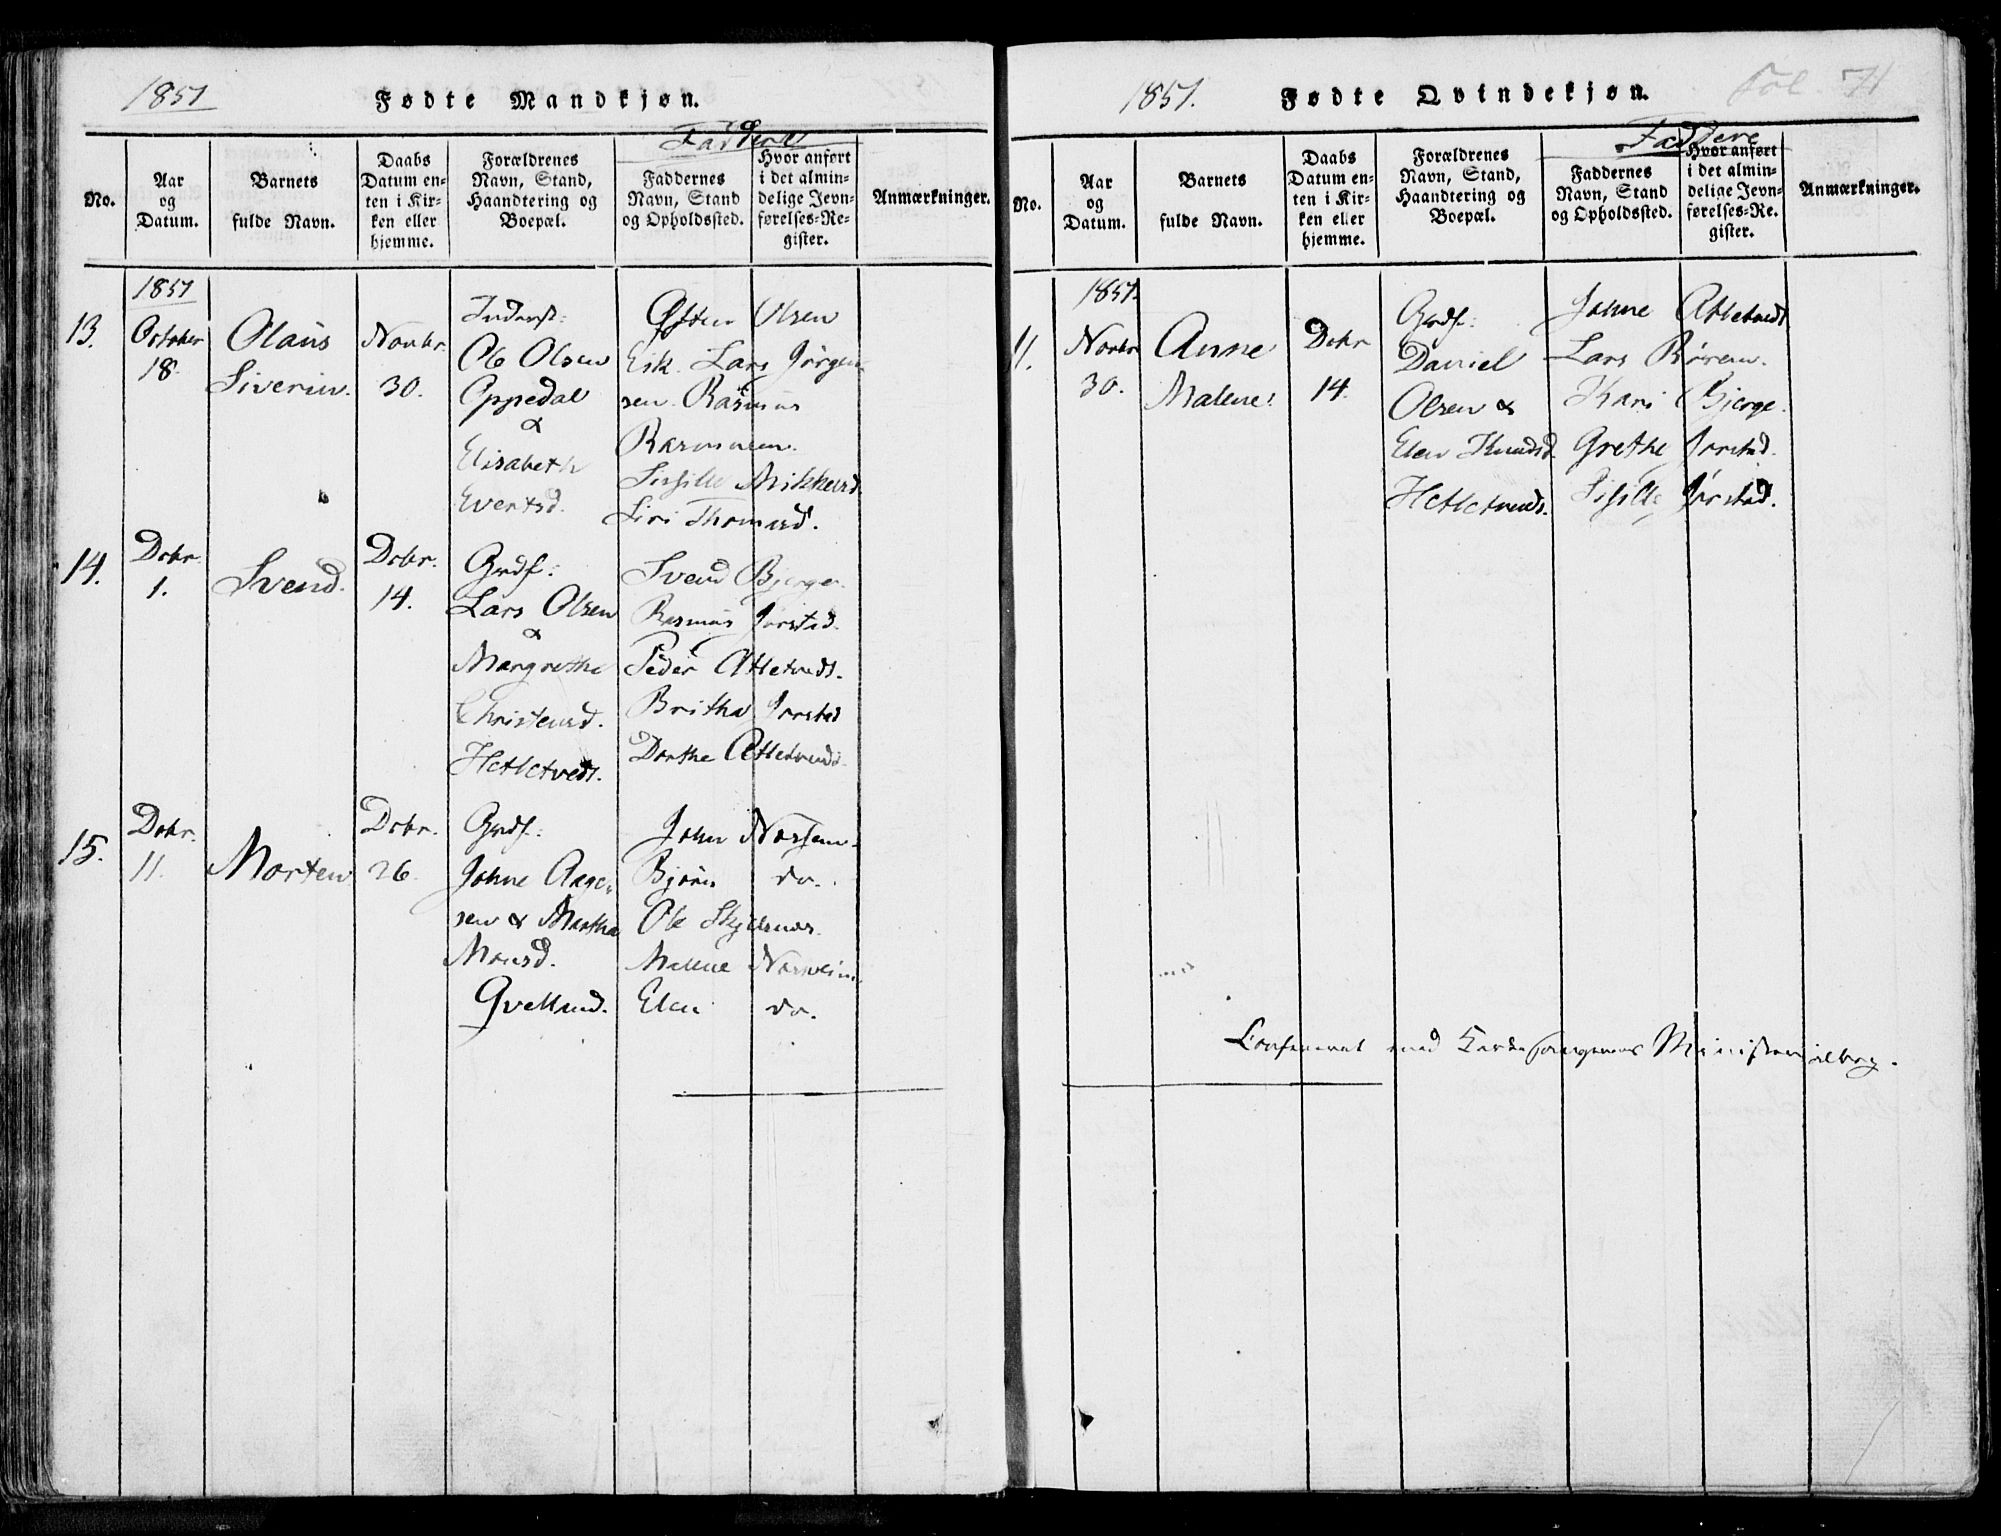 1851
Fødte Mandkjøn.
Faddere
No.
Aar
og
Datum.
Barnets
fulde Navn.
Daabs
Datum en-
ten i Kir-
ken eller
hjemme.
Forældrenes
Navn, Stand,
Haandtering og
Boepæl.
Faddernes
Navn, Stand
og Opholdssted.
Hvor anført
i det almin-
delige Jevn-
førelses-Re-
gister.
Anmærkninger.
1851
13.
October
18.
Olaus
Siverin.
Novbr.
30.
Inderst:
Ole Olsen
Oppedal
&
Elisabeth
Evertsd.
Østen Olsen
Eik. Lars Jørgen
sen. Rasmus
Rasmussen.
Sissille Mikkelsd.
Siri Thomasd.
14.
Dcbr.
1.
Svend.
Dcbr.
14.
Grdf:
Lars Olsen
&
Margrethe
Christensd.
Hetletvedt.
Svend Bjerge.
Rasmus Jorstad.
Peder Attletvedt.
Britha Jorstad
Dorthe Attletvedt.
15.
Dcbr.
11.
Morten
Dcbr.
26.
Grdf:
Johne Aage-
sen & Martha
Monsd.
Qvellund.
John
Bjørn do.
Ole
Malene
Elen do.
1851.
Fødte Qvindekjøn.
Fol. 71
Faddere
No.
Aar
og
Datum.
Barnets
fulde Navn.
Daabs
Datum en-
ten i Kir-
ken eller
hjemme.
Forældrenes
Navn, Stand,
Haandtering og
Boepæl.
Faddernes
Navn, Stand
og Opholdssted.
Hvor anført
i det almin-
delige Jevn-
førelses-Re-
gister.
Anmærkninger.
1851.
11.
Novbr
30.
Anne
Malene.
Dcbr
14.
Grdf:
Daniel
Olsen &
Elen Knudsd.
Hetletvedt.
Johne Attletvedt
Lars
Kari Bjerge.
Grethe Jorstad.
Sisille Jørstad.
Confereret med Ministerialbog.